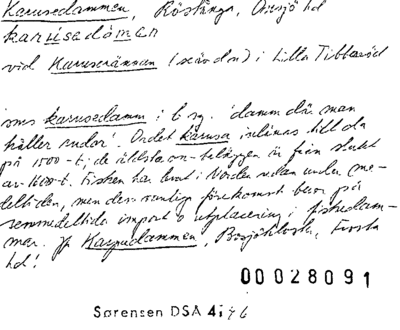 Karusedammen, Röstånga, Onsjö hd
karusedamen
vid Karuserännan (se ändn) i Lilla Tibbaröd
sms karusedamm i b sg. 'damm där man
håller rudor'. Ordet karusa inlånas till da
på 1500-t; de äldsta on-beläggen är från slutet
av 1600-t. Fisken har levt i Norden redan under me-
deltiden, men dess vanliga förekomst beror på
senmedeltida import o utplacering i fiskedam-
mar. Jf Karpadammen, Bosjökloster, Frosta
hd!
00028091
Sørensen DSA 4:46